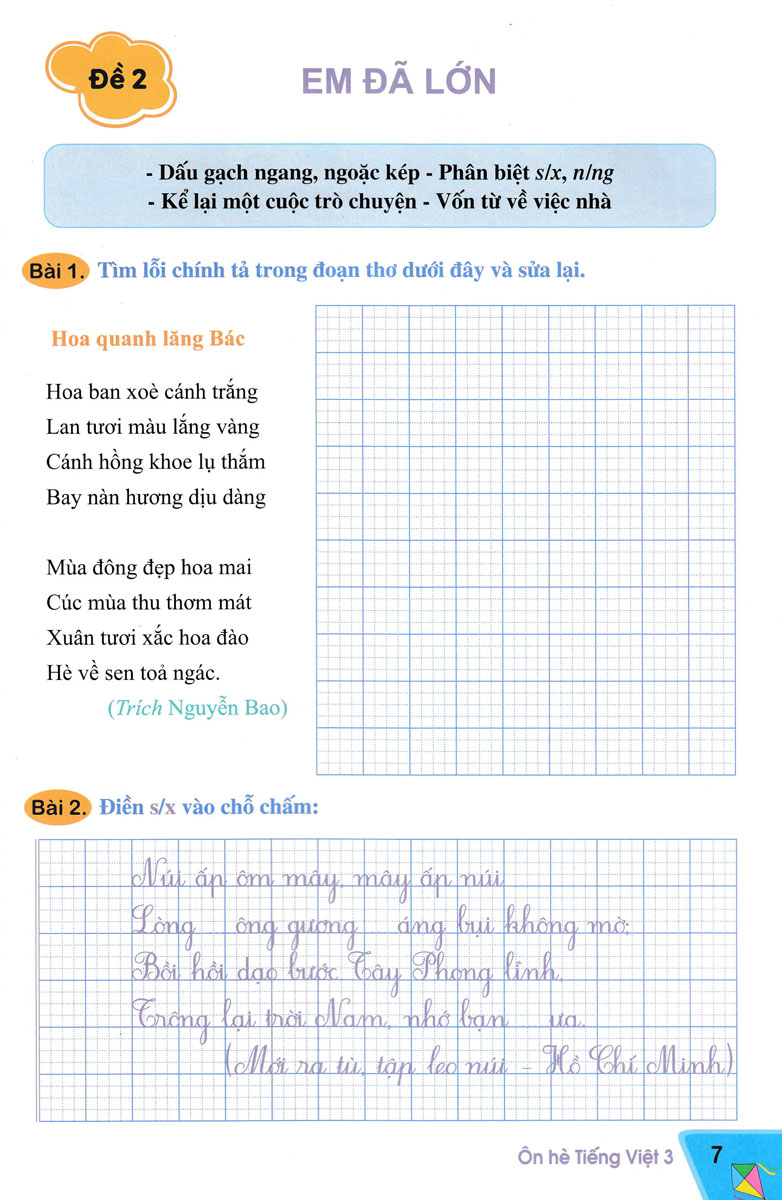 Đề 2
EM ĐÃ LỚN
- Dấu gạch ngang, ngoặc kép - Phân biệt s/x, n/ng
- Kể lại một cuộc trò chuyện - Vốn từ về việc nhà
Bài 1. Tìm lỗi chính tả trong đoạn thơ dưới đây và sửa lại.
Hoa quanh lăng Bác
Hoa ban xoè cánh trắng
Lan tươi màu lắng vàng
Cánh hồng khoe lụ thắm
Bay nàn hương dịu dàng
Mùa đông đẹp hoa mai
Cúc mùa thu thơm mát
Xuân tươi xắc hoa đào
Hè về sen toả ngác.
(Trích Nguyễn Bao)
Bài 2. Điền s/x vào chỗ chấm:
Núi ấp ôm mây, mây ấp núi
Lòng ...ông gương ...áng bụi không mờ;
Bồi hồi dạo bước Tây Phong lĩnh,
Trông lại trời Nam, nhớ bạn ...ưa.
(Mới ra tù, tập leo núi - Hồ Chí Minh)
Ôn hè Tiếng Việt 3
7